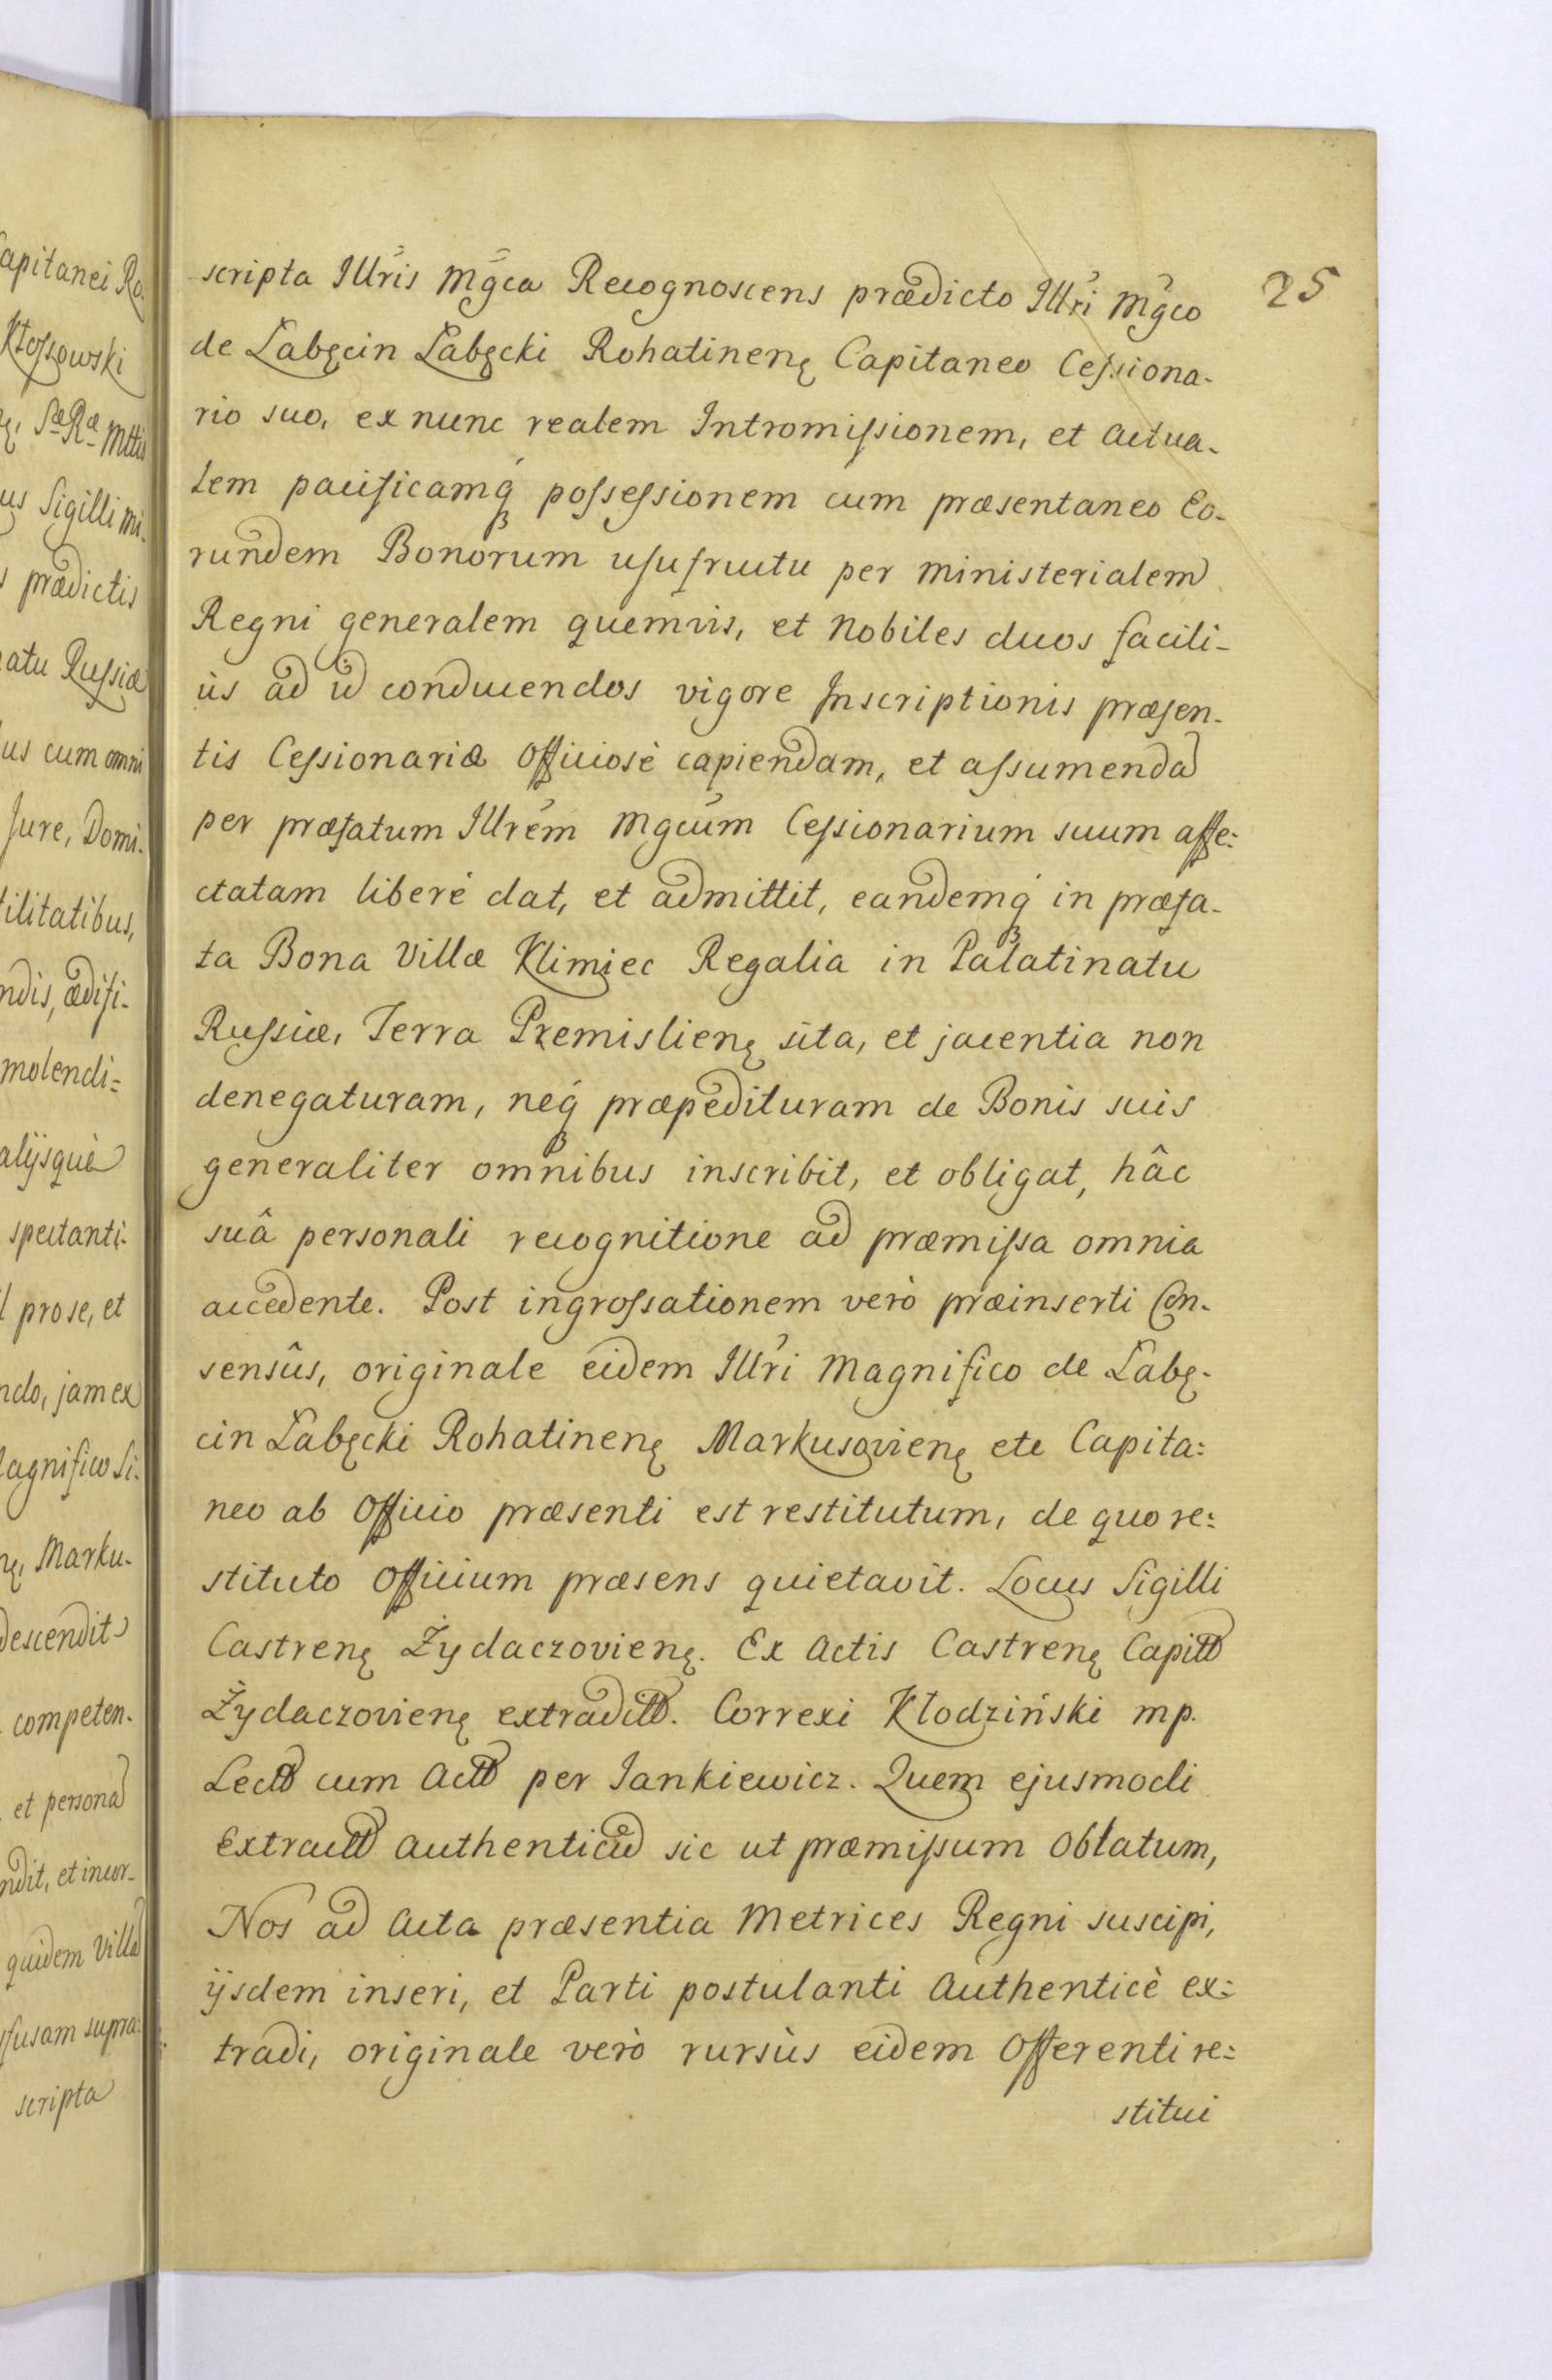 apitanei Ro.
Kłossowski
ę, Sæ Ræ Mttis
us Sigilli mi.
s prædictis
atu Russiæ
us cum omni
Jure, Domi.
tilitatibus,
ndis, ædifi-
molendi=
alijsquè
spectanti-
l prose, et
ndo, jam ex
agnifico Si.
nę, Marku.
descendit
competen.
et persona
ndit, et incor-
quidem Villa
fusam supra:
scripta
25
scripta Illris Mgca Recognoscens prædicto Illri Mgco
de Łabęcin Łabęcki Rohatinenę Capitaneo Cessiona-
rio suo, ex nunc realem Intromissionem, et actua-
lem pacificamq́ possessionem cum præsentaneo Eo-
rundem Bonorum usufructu per ministerialem
Regni generalem quemvis, et Nobiles duos facili-
ùs ad id conducendos vigore Inscriptionis præsen-
tis Cessionariæ officiosè capiendam, et assumenda
per præfatum Illrem Mgcum Cessionarium suum affe:
ctatam liberè dat, et admittit, eandemq́ in præfa-
ta Bona Villæ Klimiec Regalia in Palatinatu
Russiæ, Terra Premislienę sita, et jacentia non
denegaturam, neq́ præpedituram de Bonis suis
generaliter omnibus inscribit, et obligat, hâc
suâ personali recognitione ad præmissa omnia
accedente. Post ingrossationem verò præinserti Con-
sensûs, originale eidem Illri Magnifico de Łabę-
cin Łabęcki Rohatinenę Markusovienę etc Capita:
neo ab Officio præsenti est restitutum, de quo re:
stituto Officium præsens quietavit. Locus Sigilli
Castrenę Żydaczovienę. Ex Actis Castrenę Capitt
Żydaczovienę extraditt. Correxi Kłodziński mp.
Lectt cum Actt per Jankiewicz. Quem ejusmodi
Extractt authenticu sic ut præmissum oblatum,
Nos ad Acta præsentia Metrices Regni suscipi,
ijsdem inseri, et Parti postulanti Authenticè ex:
tradi, originale verò rursùs eidem Offerenti re:
stitui